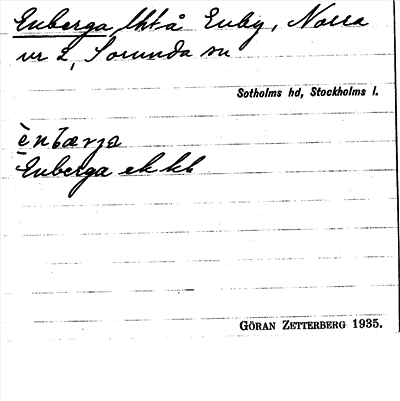 Enberga, lht å Enby, Norra
nr 2, Sorunda sn
Sotholms hd, Stockholms l.
ènbærja
Enberga ek kb
GÖRAN ZETTERBERG 1935.